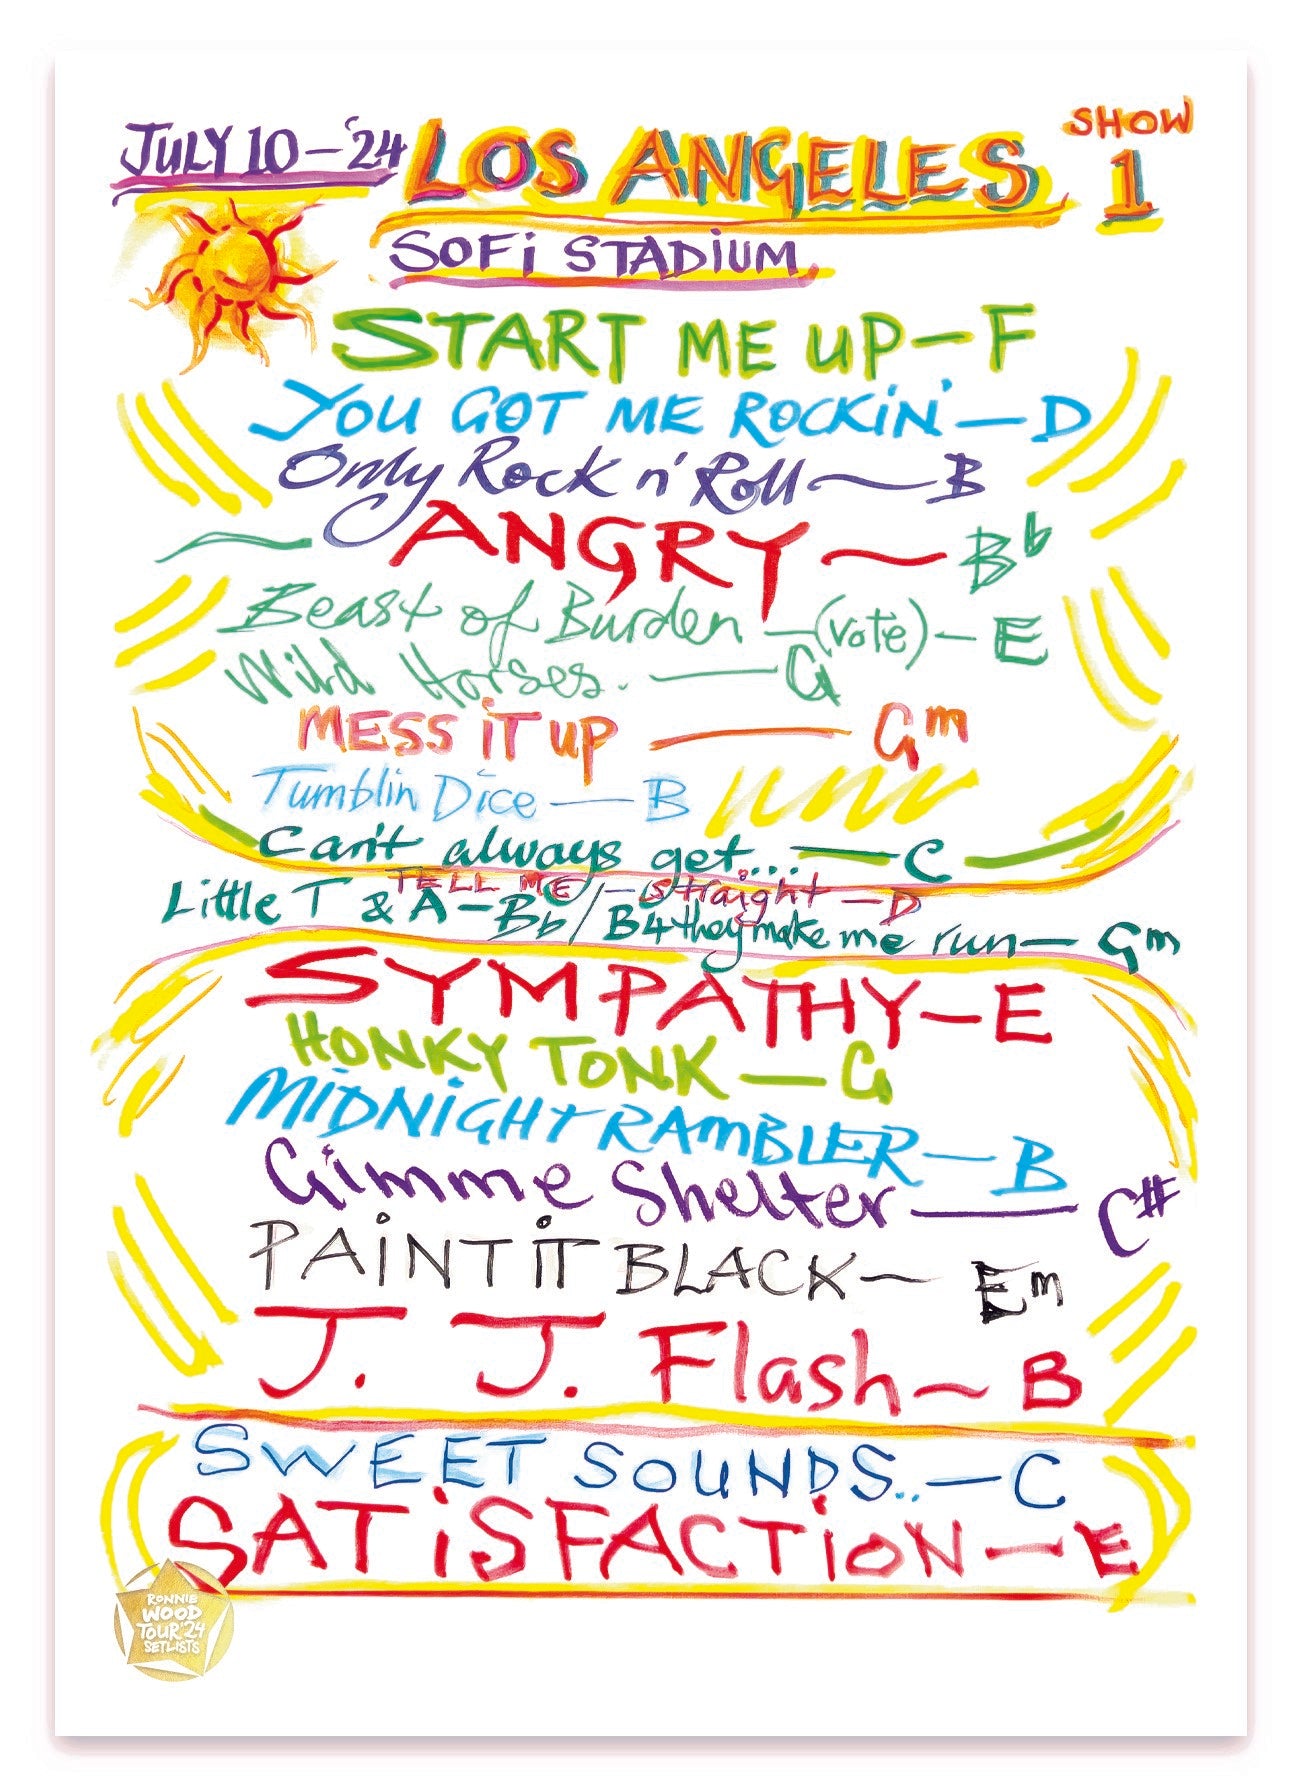 JULY 10 – '24 LOS ANGELES SHOW 1
SOFI STADIUM
START ME UP – F
YOU GOT ME ROCKIN' – D
Only Rock n' Roll ~ B
ANGRY ~ Bb
Beast of Burden – (vote) – E
Wild Horses. — G
MESS IT UP — Gm
Tumblin Dice — B
Can't always get... — C
TELL ME – straight – D
Little T & A – Bb / B4 they make me run – Gm
SYMPATHY – E
HONKY TONK – G
MIDNIGHT RAMBLER – B
Gimme Shelter — C#
PAINT IT BLACK ~ Em
J. J. Flash ~ B
SWEET SOUNDS.. – C
SATISFACTION – E
RONNIE
WOOD
TOUR '24
SETLISTS